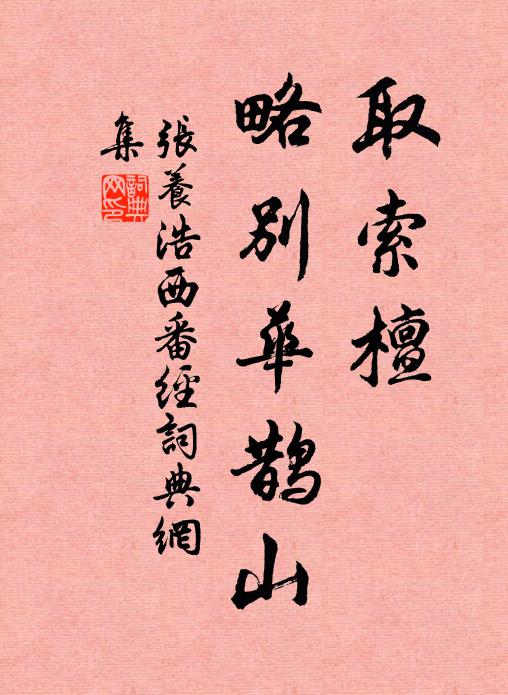 取索檀
略别華鹊山
張養浩西番經詞典網
集
詞典
网印